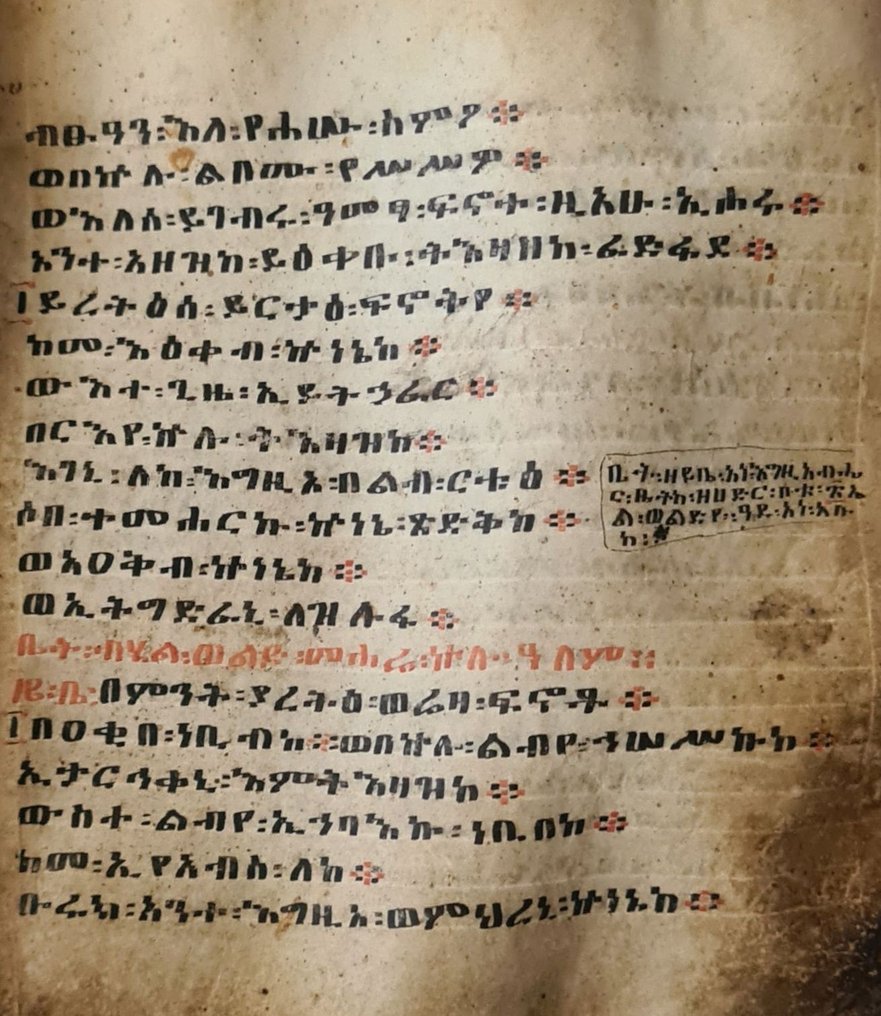 ብፁዓን፡እለ፡የሐሡ፡ስምዖ፨
ወበኵሉ፡ልበሙ፡የሥሥዎ፨
ወእለሰ፡ይገብሩ፡ዓመፃ፡ፍኖተ፡ዚአሁ፡ኢሖሩ፨
አንተ፡አዘዝከ፡ይዕቀቡ፡ትእዛዘከ፡ፈድፋደ፨
ይረትዕሰ፡ይርታዕ፡ፍኖትየ፨
ከመ፡እዕቀብ፡ኵነኔከ፨
ውእተ፡ጊዜ፡ኢይትኃፈር፨
በርእየ፡ኵሉ፡ትእዛዝከ፨
እገኒ፡ለከ፡እግዚኦ፡በልብ፡ርቱዕ፨
ሶበ፡ተመሐርኩ፡ኵነኔ፡ጽድቅከ፨
ወአዐቅብ፡ኵነኔከ፨
ወኢትግድፈኒ፡ለዝሉፋ፨
ቤት፡ብሂል፡ወልድ፡መሐሬ፡ኵሉ፡ዓለም፡፡
ዘይ፡ቤ፡በምንት፡ያረትዕ፡ወሬዛ፡ፍኖቶ፨
በዐቂበ፡ነቢብከ፨ወበኵሉ፡ልብየ፡ኀሠሥኩከ፨
ኢታርኅቀኒ፡እምትእዛዝከ፨
ውስተ፡ልብየ፡ኢኀባእኩ፡ነቢበከ፨
ከመ፡ኢየአብስ፡ለከ፨
ቡሩክ፡አንተ፡እግዚኦ፡ወምህረኒ፡ኵነኔከ፨
ቤት፡ዘይቤ፡እግዚአብሔ
ር፡ዘኀድር፡
ል፡ወልድየ፡